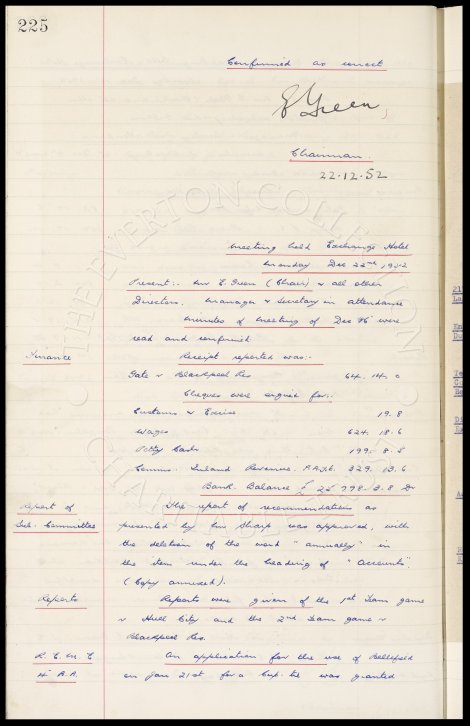 225
Confirmed as correct
E Green,
Chairman
22.12.52
THE EVERTON COLLECTION
CHARITABLE
Meeting held Exchange Hotel
Monday Dec 22nd 1952
Present:- Mr E. Green (Chair) & all other
Directors. Manager & Secretary in attendance
Minutes of meeting of Dec 16 were
read and confirmed.
Finance
Receipt reported was:-
Gate v Blackpool Res 64. 14. 0
Cheques were signed for:-
Customs & Excise 19. 8
Wages 624. 18. 6
Petty Cash 199. 8. 5
Comms. Inland Revenue. P.A.Y.E. 329. 13. 6
Bank Balance £ 798. 3. 8 Dr
Report of
Sub. Committee
The report of recommendations as
presented by Mr Sharp was approved, with
the deletion of the word "annually" in
the item under the heading of "accounts".
(Copy annexed).
Reports
Reports were given of the 1st Team game
v Hull City and the 2nd Team game v
Blackpool Res.
An application for the use of Bellefield
on Jan 21st for a Cup-tie was granted